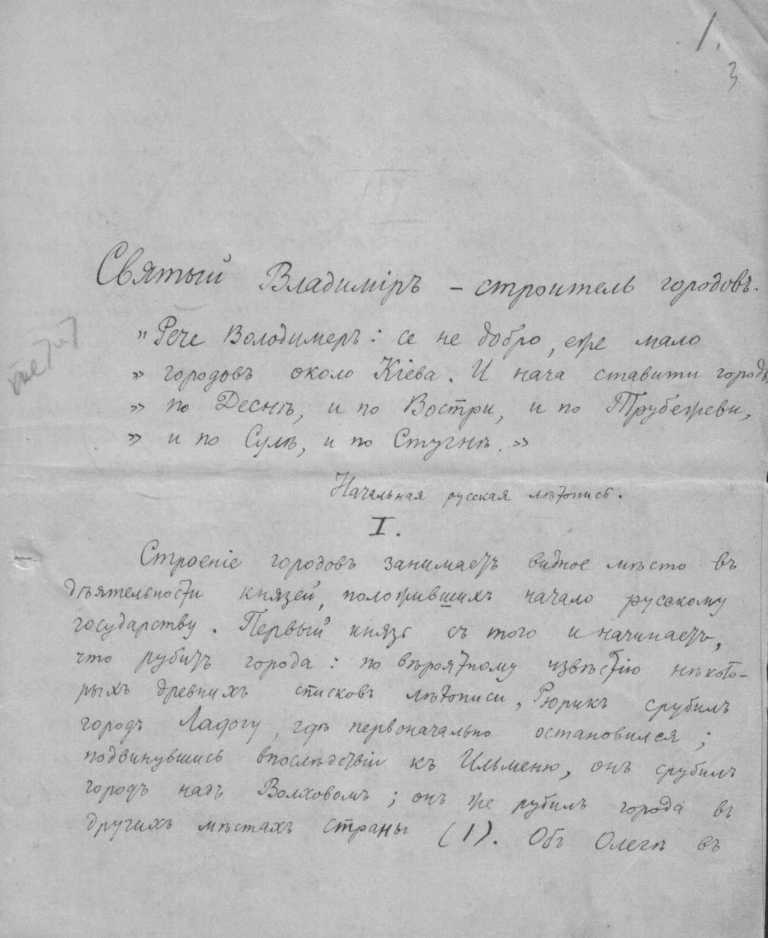 1.
3
Святый Владиміръ – строитель городовъ.
„Рече Володимеръ: се не добро, еже мало
» городовъ около Кіева. И нача ставити городы
» по Деснѣ, и по Востри, и по Трубежеви,
» и по Сулѣ, и по Стугнѣ.»
Начальная русская лѣтопись.
I.
Строеніе городовъ занимаетъ видное мѣсто въ
дѣятельности князей, положившихъ начало русскому
государству. Первый князь съ того и начинаетъ,
что рубитъ города: по вѣроятному извѣстію нѣкото-
рыхъ древнихъ списковъ лѣтописи, Рюрикъ срубилъ
городъ Ладогу, гдѣ первоначально остановился;
подвинувшись впослѣдствіи къ Ильменю, онъ срубилъ
городъ надъ Волховомъ; онъ же рубилъ города въ
другихъ мѣстахъ страны (1). Объ Олегѣ въ